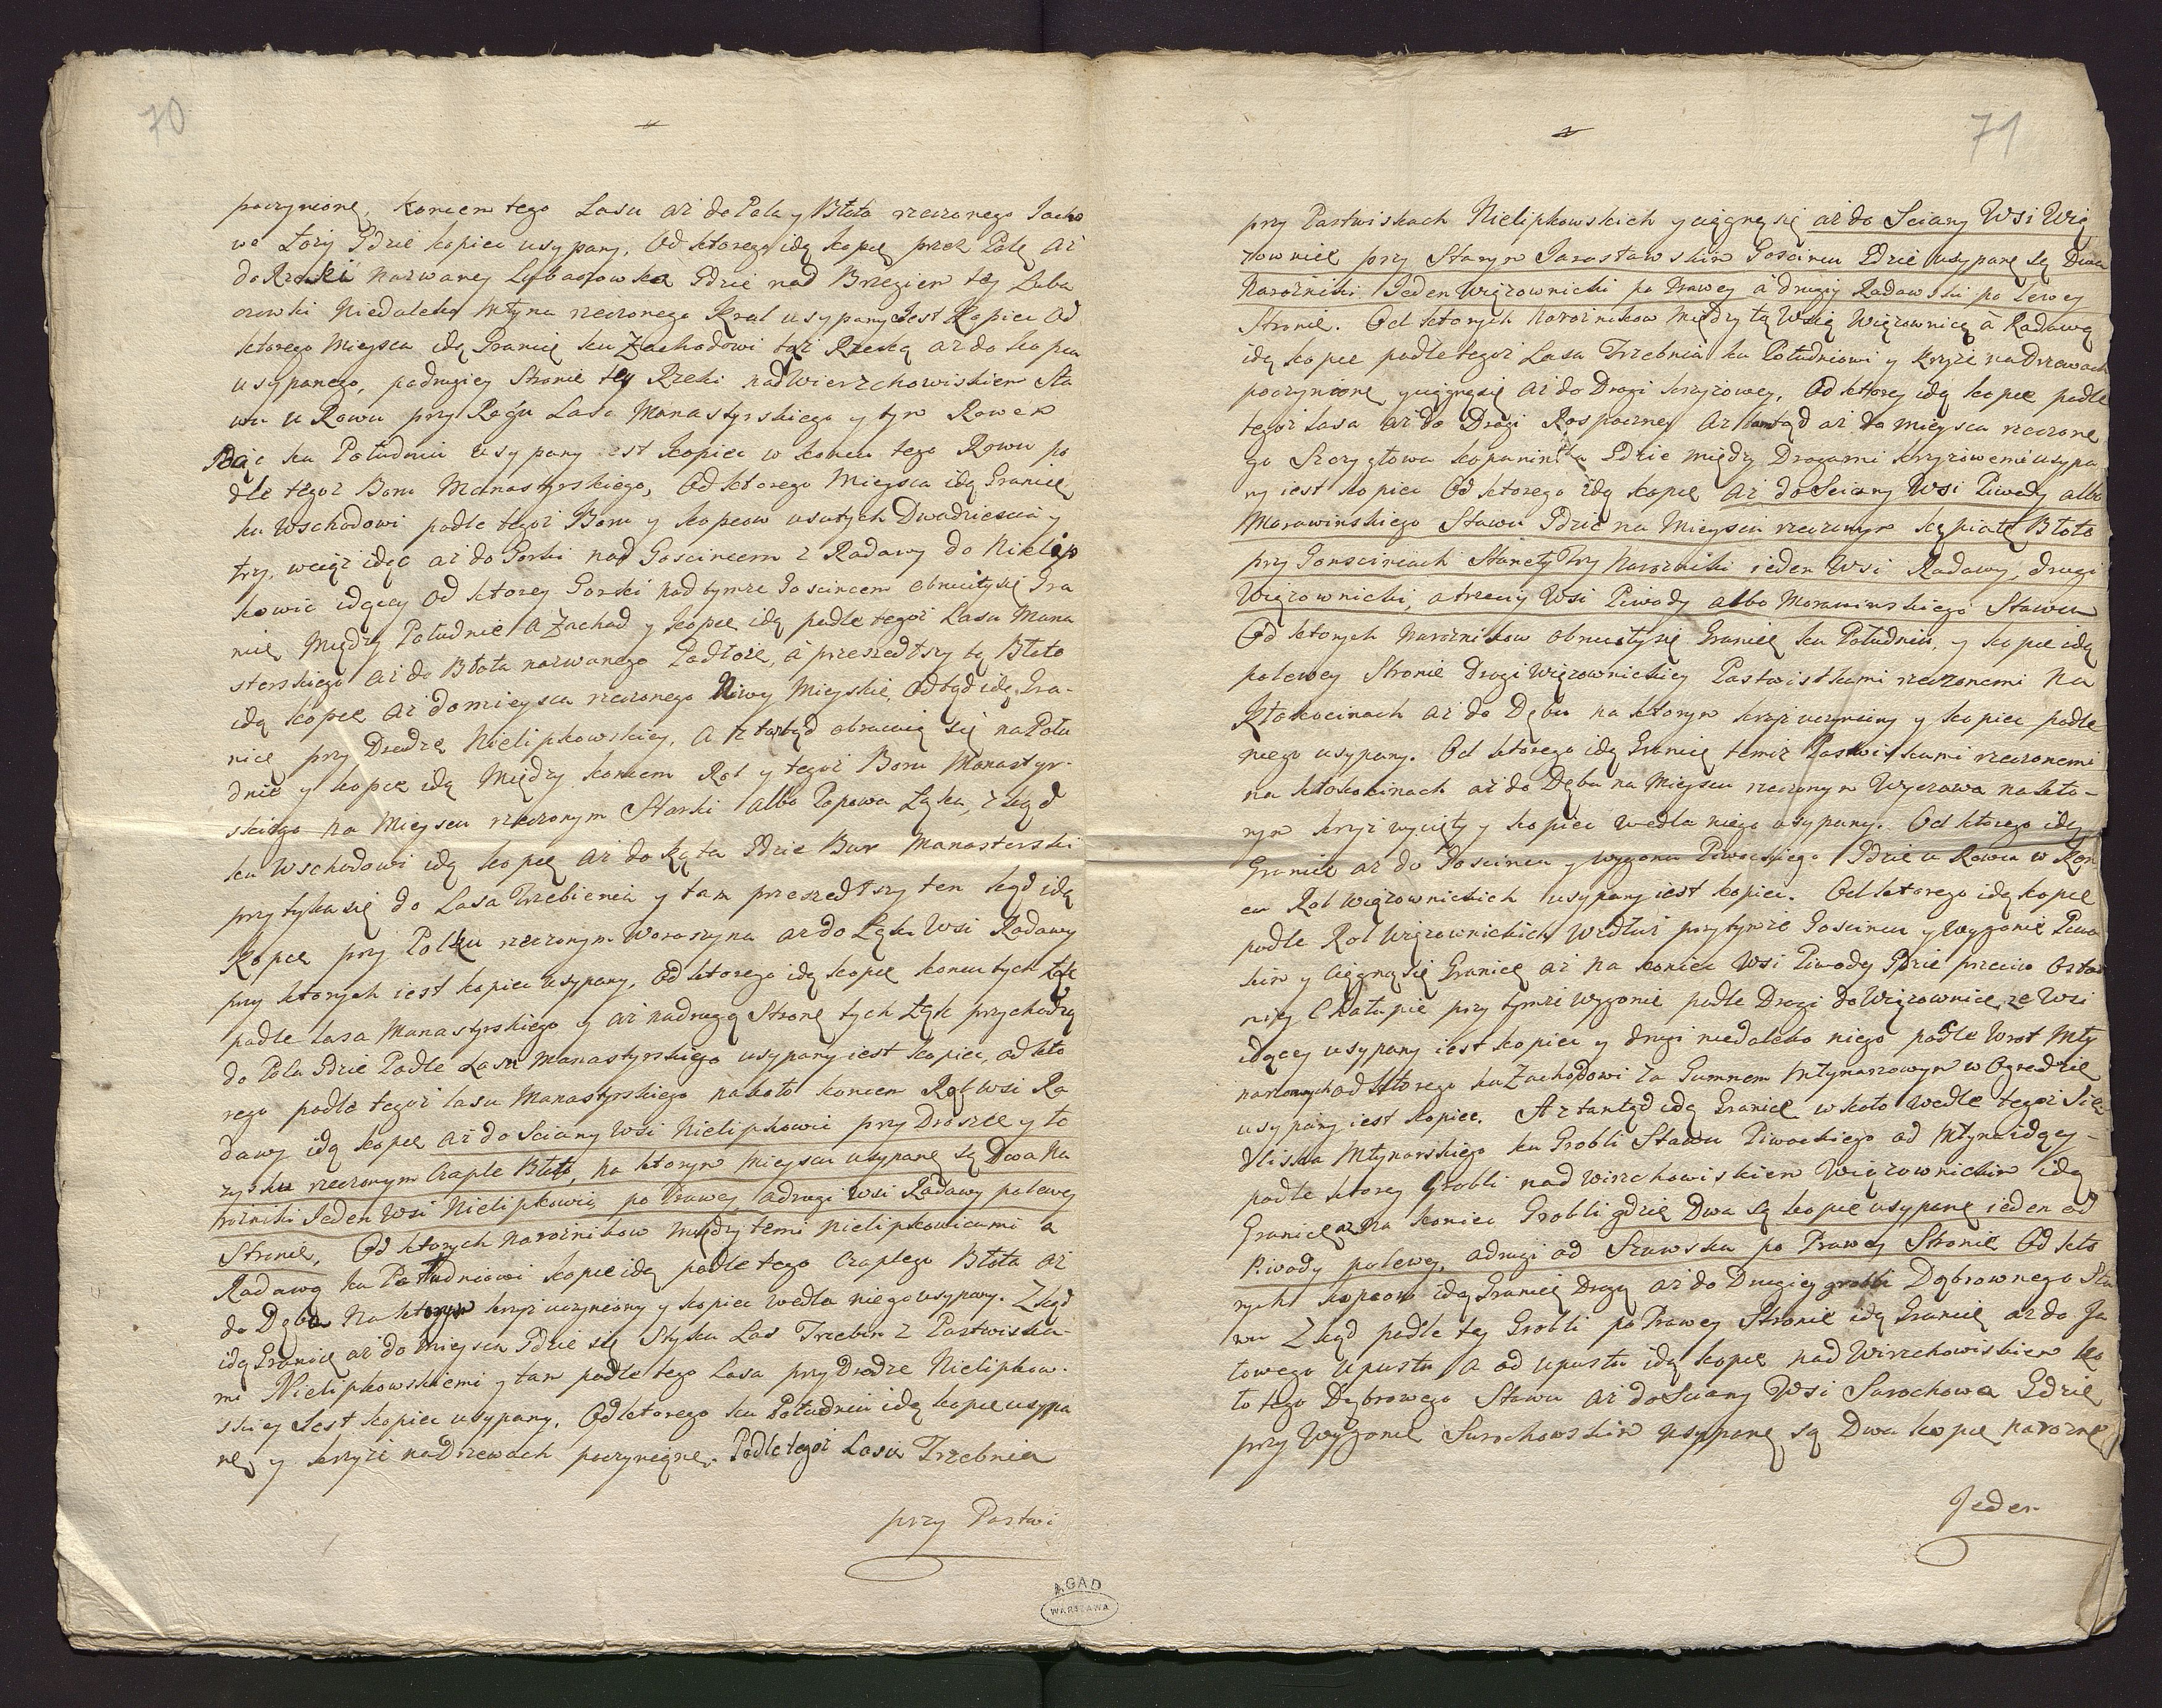 70
poczynionę, koncem tego Lasu aż do Pola y Błota rzeczonego Jacho
we Łozy Gdzie kopiec usypany, Od ktorego idą kopcę przez Polę aż
do Rzeki nazwaney Lubaczowka Gdzie nad Brzegiem tey Luba
czowki Niedaleko Młyna rzeczonego Kral usypany Jest Kopiec Od
ktorego Mieysca idą Granicę ku Zachodowi taż Rzeką aż do kopca
usypanego, podrugiey Stronie tey Rzeki nad Wierzchowiskiem Sta
wu u Rowu przy Rogu Lasa Monastyrskiego y tym Rowem
Idąc ku Południu usypany iest kopiec w koncu tego Rowu po
dle tegoż Boru Monastyrskiego, Od ktorego Mieysca idą Granicę
ku Wschodowi podle tegoż Boru y kopcow usutych Dwadziescia y
trzy, wciąż idąc aż do Gorki nad Goscincem z Radawy do Nielip
kowic idący Od ktorey Gorski nad tymże Goscincem obrucyły się Gra
nicę Między Południe a Zachod y kopcę idą podle tegoż Lasu Mona
sterskiego aż do Błota nazwanego Padłoże, á przeszedłszy tę Błoto
idą kopcę aż do mieysca rzeczonego Niwy Mieyskie, Odtąd idą Gra-
nice przy Drodze Nielipkowskiey, A z tamtąd obracaią się na Połu
dnie y kopcę idą Między koncem Rol y tegoż Boru Monastyr-
skiego na Mieyscu rzeczonym Starki albo Popowa Łąka, z kąd
ku Wschodowi idą kopcę aż do Kąta Gdzie Bur Monasterski
przytyka się do Lasa Trzebienia y tam przeszedłszy ten kąd idą
Kopcę przy Polku rzeczonym Woroszyna aż do Łąk Wsi Radawy
przy ktorych iest kopiec usypany, Od ktorego idą kopcę koncu tych Łąk
podle lasa Monastyrskiego y aż na drugą Stronę tych Łąk przychodzą
do Pola Gdzie Podle Lasu Monastyrskiego usypany iest kopiec, od kto
rego podle tegoż lasu Monastyrskiego nakoło koncem Rol Wsi Ra
dawy idą kopcę aż do Sciany Wsi Nielipkowic przy Drożce y to
zysku rzeczonym Czaple Błoto, na ktorym Mieyscu usypanę są Dwa Na
rożniki Jeden Wsi Nielipkowic po Prawey a drugi Wsi Radawy polewey
Stronie, Od ktorych narożnikow między temi Nielipkowicami a
Radawą ku Południowi kopce idą podle tego Czaplego Błota aż
do Dęba Na ktorym krzyż uczyniony y kopiec wedla niego usypany. Zkąd
idą Granicę aż do mieysca Gdzie się Styka Las Trzebin z Pastwiska-
mi Nielipkowskiemi y tam podle tego Lasa przy Drodze Nielipkow-
skiey Jest kopiec usypany, Od ktorego ku Południu idą kopcę usypa
nę y krzyże na Drzewach poczynionę. Podle tegoż Lasu Trzebnia
przy Pastwi
71
przy Pastwiskach Nielipkowskich y ciągną się aż do Sciany Wsi Wię
zownicę przy Starym Jarosławskim Goscincu Gdzie usypanę są Dwa
Narożniki Jeden Więzownicki po Prawey á drugiy Radawski po Lewey
Stronie. Od ktorych Narożnikow Między tą Wsią Więzownicą á Radawą
idą kopcę podle tegoż Lasa Trzebnia ku Południowi y krzyże na Drzewach
poczynione y ciągną się aż do Drogi krzyżowey, Od ktorey idą kopcę podle
tegoż Lasa aż do Drogi Rospoczney Az tamtąd aż do mieysca rzeczone
go Szczygłowa kopaninka Gdzie między Drogami krzyżowemi usypa
ny iest kopiec Od ktorego idą kopcę aż do Sciany Wsi Piwody albo
Morawinskiego Stawu Gdzie na Mieyscu rzeczonym kępiate Błoto
przy Gonscincach Stanęły trzy Narożniki ieden Wsi Radawy, drugi
Więzownicki, a trzeciy Wsi Piwody albo Morawinskiego Stawu
Od ktorych Narożnikow obruciły się Granicę ku Południu, y kopce idą
polewey Stronie Drogi Więzownickiey Pastwiskami rzeczonemi Na
Kłokocinach aż do Dębu na ktorym krzyż uczyniony y kopiec podle
niego usypany. Od ktorego idą Granicę temiż Pastwiskami rzeczonemi
na kłokocinach aż do Dębu na Mieyscu rzeczonym Wyczawa na kto-
rym krzyż wycięty y kopiec wedla niego usypany. Od ktorego idą
Granicę aż do Goscincu y wygonu Piwockiego Gdzie u Rowu w Kon
cu Rol Więzownickich usypany iest kopiec. Od ktorego idą kopcę
podle Rol Więzownickich Wzdłuż przytymże Goscincu y Wygonie Piwo
kim y Ciągną się Granicę aż na koniec Wsi Piwody Gdzie przeciw Ostat
niey Chałupie przy tymże wygonie podle Drogi do Więzownice, ze Wsi
idącey usypany iest kopiec y drugi niedaleko niego podle Wrot Mły
narzowych od ktorego ku Zachodowi za Gumnem Młynarzowym w Ogrodzie
usypany iest kopiec. A z tamtąd idą Granicę wkoło wedle tegoż Sie-
dliska Młynarskiego ku Grobli Stawu Piwockiego od Młyna idącey-
podle ktorey Grobli nad wirzchowiskiem Więzownickim idą
Granicę aż na koniec Grobli gdzie Dwa są kopcę usypanę ieden od
Piwody polewey, a drugi od Szawska po Prawey Stronie Od kto
rych kopcow idą Granicę Drogą aż do Drugiey grobli Dąbrownego Sta
wu Zkąd podle tey Grobli po Prawey Stronie idą Granicę aż do Ja
lowego Upustu A od upustu idą kopcę nad Wirzchowiskiem ko
ło tego Dąbrowego Stawu aż do Sciany Wsi Surochowa Gdzie
przy Wygonie Surochowskim usypanę są Dwa kopcę narożnę
Jeden
AGAD
WARSZAWA